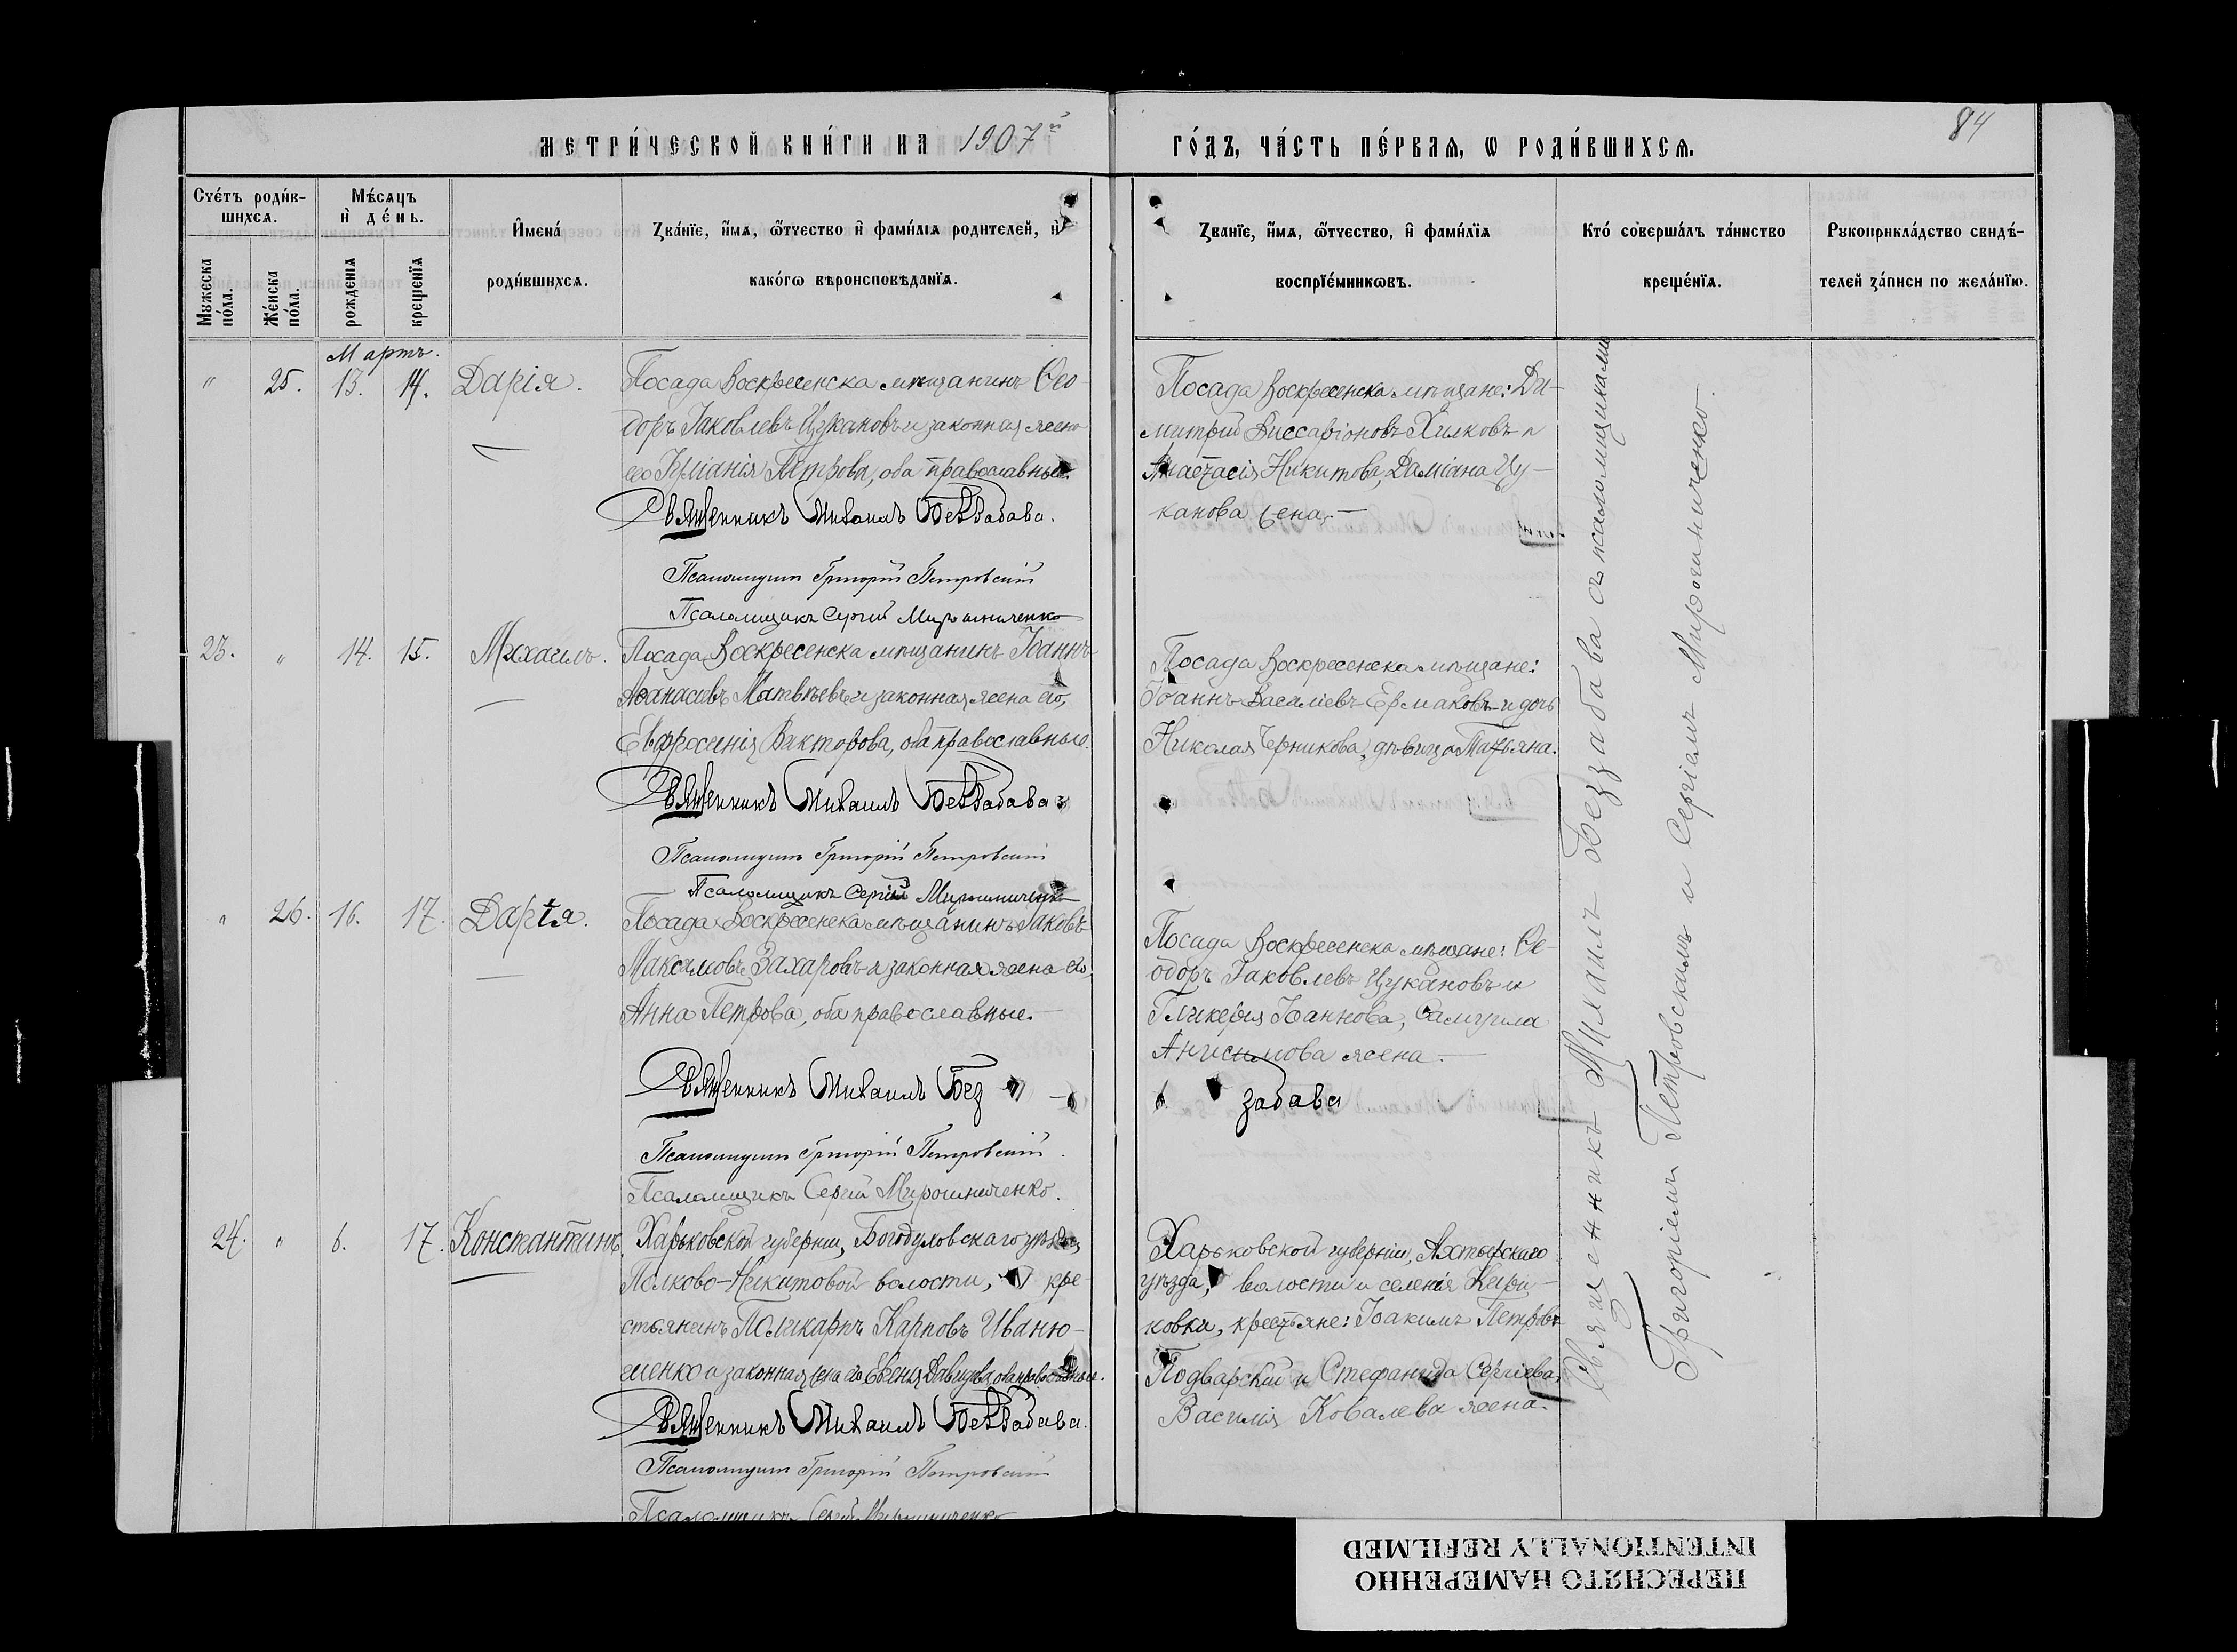 метрической книги на 1907й
годъ, часть первая, ѡ родившихся.
84
Счетъ родив-
шихся.
Мужеска пола.
Женска пола.
Мѣсяцъ
и день.
рожденія
крещенія
Имена
родившихся.
Званіе, имя, ѡтчество и фамилія родителей, и
какогѡ вѣроисповѣданія.
Званіе, имя, ѡтчество, и фамилія
воспріемникѡвъ.
Кто совершалъ таинство
крещенія.
Рукоприкладство свидѣ-
телей записи по желанію.
Мартъ.
" 25. 13. 14. Дарія.
Посада Воскресенска мѣщанинъ Ѳео-
доръ Іаковлевъ Цукановъ и законная жена
его Петрова, оба православные.
Священникъ Михаилъ Беззабава.
Псаломщикъ Григорій Петровскій
Псаломщикъ Сергій Мирошниченко
Посада Воскресенска мѣщане: Ди-
митрій Виссаріоновъ Хилковъ и
Анастасія Никитова, Даміана Цу-
канова жена.
23. " 14. 15. Михаилъ.
Посада Воскресенска мѣщанинъ Іоаннъ
Аѳанасіевъ Матвѣевъ и законная жена его,
Евфросинія Викторова, оба православные.
Священникъ Михаилъ Беззабава
Псаломщикъ Григорій Петровскій
Псаломщикъ Сергій Мирошниченко
Посада Воскресенска мѣщане:
Іоаннъ Василіевъ Ермаковъ и дочь
Николая Черникова, дѣвица Татьяна.
" 26. 16. 17. Дарія.
Посада Воскресенска мѣщанинъ Іаковъ
Максимовъ Захаровъ и законная жена его,
Анна Петрова, оба православные.
Священникъ Михаилъ Без
забава
Псаломщикъ Григорій Петровскій
Псаломщикъ Сергій Мирошниченко.
Посада Воскресенска мѣщане: Ѳе-
одоръ Іаковлевъ Цукановъ и
Гликерія Іоаннова, Самуила
Анисимова жена.
24. " 6. 17. Константинъ.
Харьковской губерніи, Богодуховскаго уѣзда,
Полково-Никитовой волости, кре-
стьянинъ Поликарпъ Карповъ Иваню-
шенко и законная жена его Евгенія Давидова, оба православные.
Священникъ Михаилъ Беззабава.
Псаломщикъ Григорій Петровскій
Псаломщикъ Сергій Мирошниченко
Харьковской губерніи, Ахтырскаго
уѣзда, волости и селенія Кири-
ковки, крестьяне: Іоакимъ Петровъ
Подварскій и Стефанида Сергіева,
Василія Ковалева жена.
Священникъ Михаилъ Беззабава съ псаломщиками
Григоріемъ Петровскимъ и Сергіемъ Мирошниченко.
ПЕРЕСНЯТО НАМЕРЕННО
INTENTIONALLY REFILMED